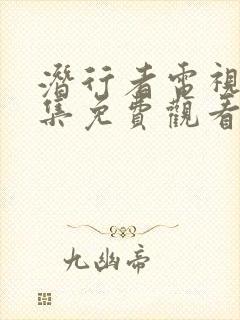 潛行者電視
集免費觀看
九幽帝